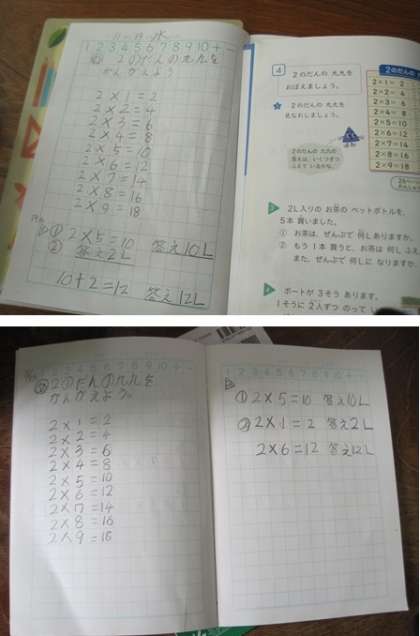 1 2 3 4 5 6 7 8 9 10 + −
2のだんの九九を
かんがえよう
2×1=2
2×2=4
2×3=6
2×4=8
2×5=10
2×6=12
2×7=14
2×8=16
2×9=18
① 2×5=10 答え10L
② 答え2L
10+2=12 答え12L
4
2のだんの 九九を
おぼえましょう。
2のだんの 九九を
見なおしましょう。
2のだんの 九九の
答えは、いくつずつ
ふえて いるかな。
2のだんの
2×1=2
2×2=4
2×3=6
2×4=8
2×5=10
2×6=12
2×7=14
2×8=16
2×9=18
2L入りの お茶の ペットボトルを、
5本 買いました。
① お茶は、ぜんぶで 何L ありますか。
② もう 1本 買うと、お茶は 何L ふえ
また、ぜんぶで 何Lに なりますか。
ボートが 3そう あります。
1そうに 2人ずつ のって い
1 2 3 4 5 6 7 8 9 10 + −
2のだんの九九を
かんがえよう。
2×1=2
2×2=4
2×3=6
2×4=8
2×5=10
2×6=12
2×7=14
2×8=16
2×9=18
① 2×5=10 答え10L
② 2×1=2 答え2L
2×6=12 答え12L